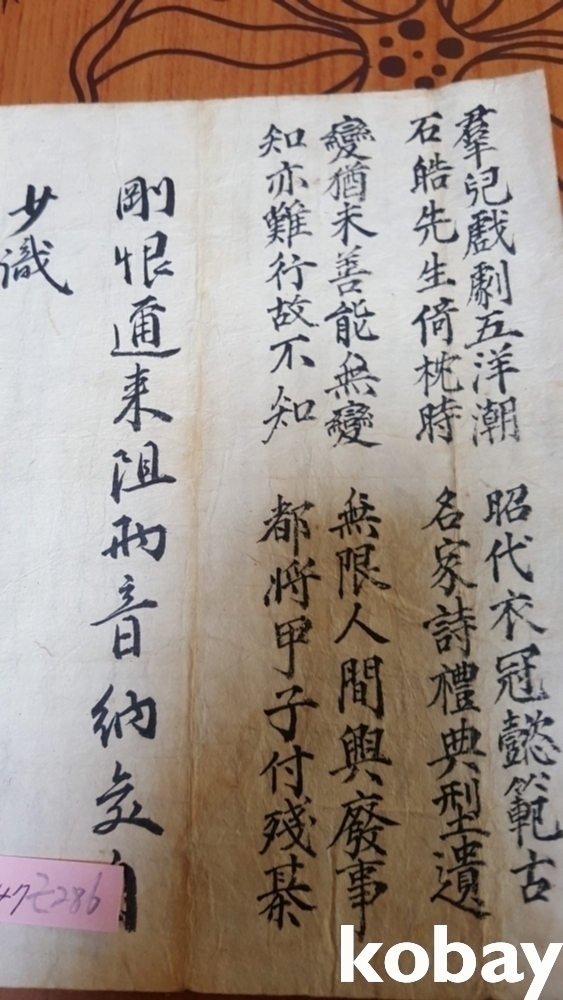 羣兒戲劇五洋潮 昭代衣冠懿範古
石皓先生倚枕時 名家詩禮典型遺
變猶未善能無變 無限人間興廢事
知亦難行故不知 都將甲子付殘棊
剛恨邇来阻両音納交
少識
286
kobay